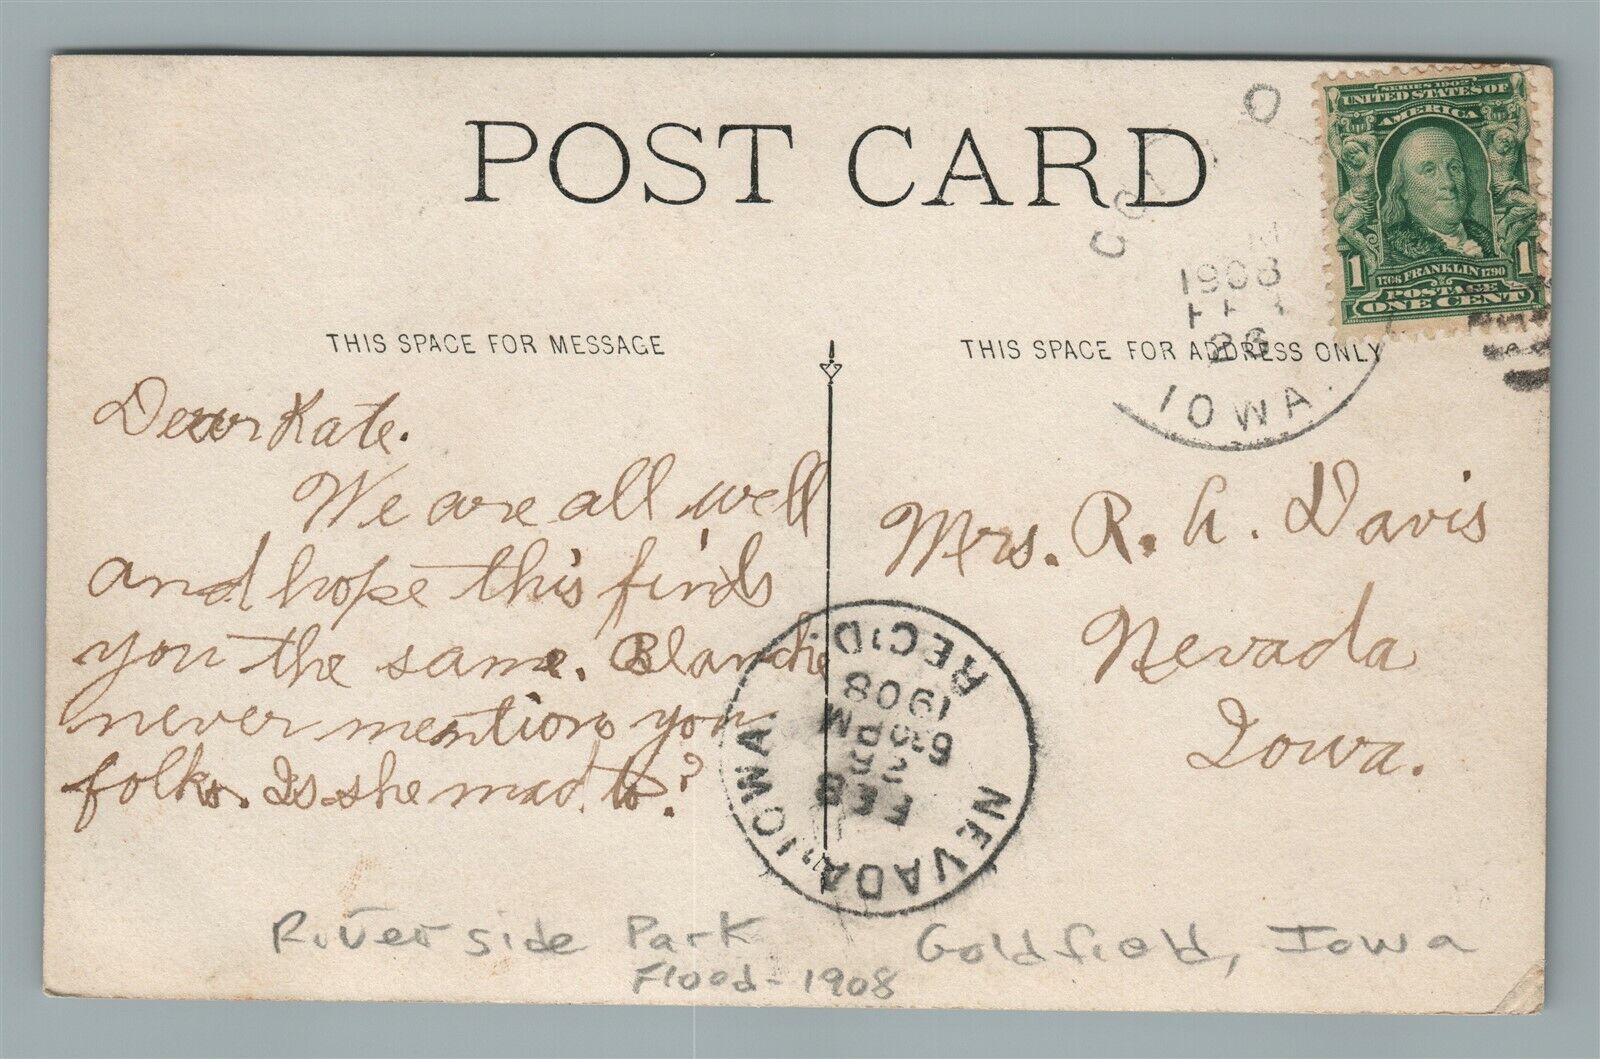 POST CARD
SERIES 1902
UNITED STATES OF
AMERICA
1 1
1706 FRANKLIN 1790
POSTAGE
ONE CENT
1908
26
IOWA.
THIS SPACE FOR MESSAGE
THIS SPACE FOR ADDRESS ONLY
Dear Kate.
We are all well
and hope this finds
you the same. Blanche
never mentions you
folks. Is she mad, to?
Mrs. R. A. Davis
Nevada
Iowa.
NEVADA, IOWA.
REC'D.
FEB
27
6 30 PM
1908
River side Park
Flood - 1908
Goldfield, Iowa